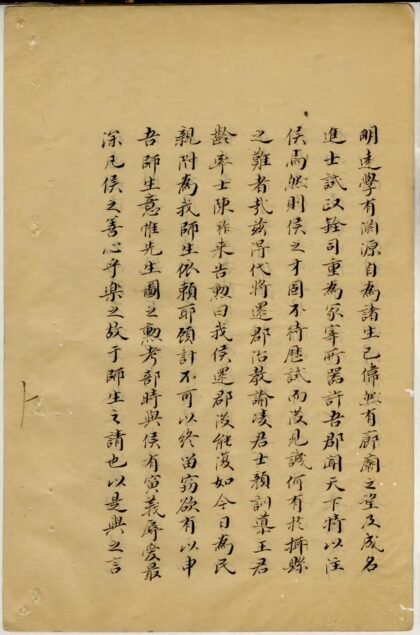 明遠學有淵源自為諸生已偉然有廊廟之望及成名
進士試政銓司重為冢宰所器許吾郡聞天下特以注
侯焉然則侯之才固不待歷試而後見誠何有於揮縣
之難者哉茲得代將還郡治教諭凌君士顏訓導王君
齡率士陳祚來告勲曰我侯還郡後能復如今日為民
親附為我師生依賴耶顧計不可以終留竊欲有以申
吾師生意惟先生圖之勲考部時與侯有寅義辱愛最
深凡侯之善心乎樂之故于師生之請也以是與之言